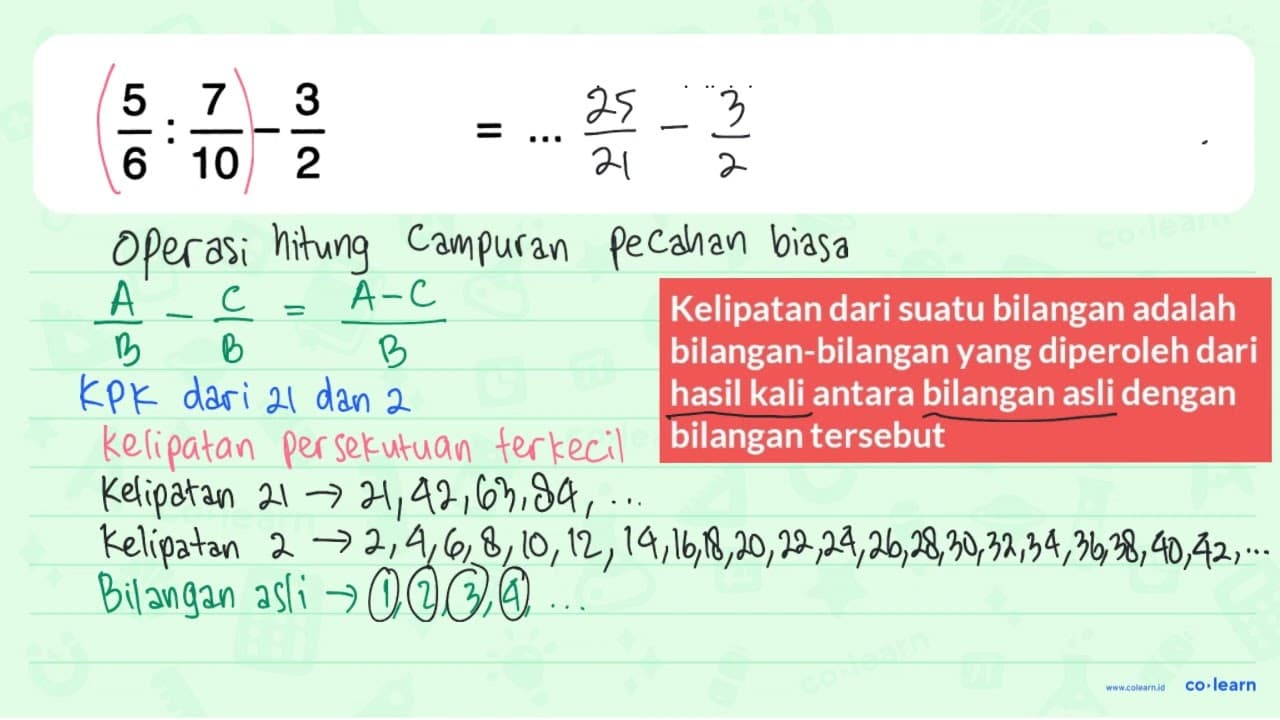 (5/6 : 7/10) - 3/2 = ... 25/21 - 3/2
Operasi hitung Campuran Pecahan biasa
A/B - C/B = A-C/B
Kelipatan dari suatu bilangan adalah
bilangan-bilangan yang diperoleh dari
hasil kali antara bilangan asli dengan
bilangan tersebut
KPK dari 21 dan 2
Kelipatan persekutuan terkecil
Kelipatan 21 → 21, 42, 63, 84, ...
Kelipatan 2 → 2, 4, 6, 8, 10, 12, 14, 16, 18, 20, 22, 24, 26, 28, 30, 32, 34, 36, 38, 40, 42, ...
Bilangan asli → 1, 2, 3, 4, ...
www.colearn.id co·learn